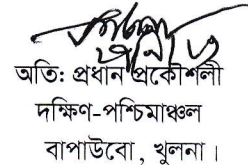 অতি: প্রধান প্রকৌশলী
দক্ষিণ-পশ্চিমাঞ্চল
বাপাউবো, খুলনা।